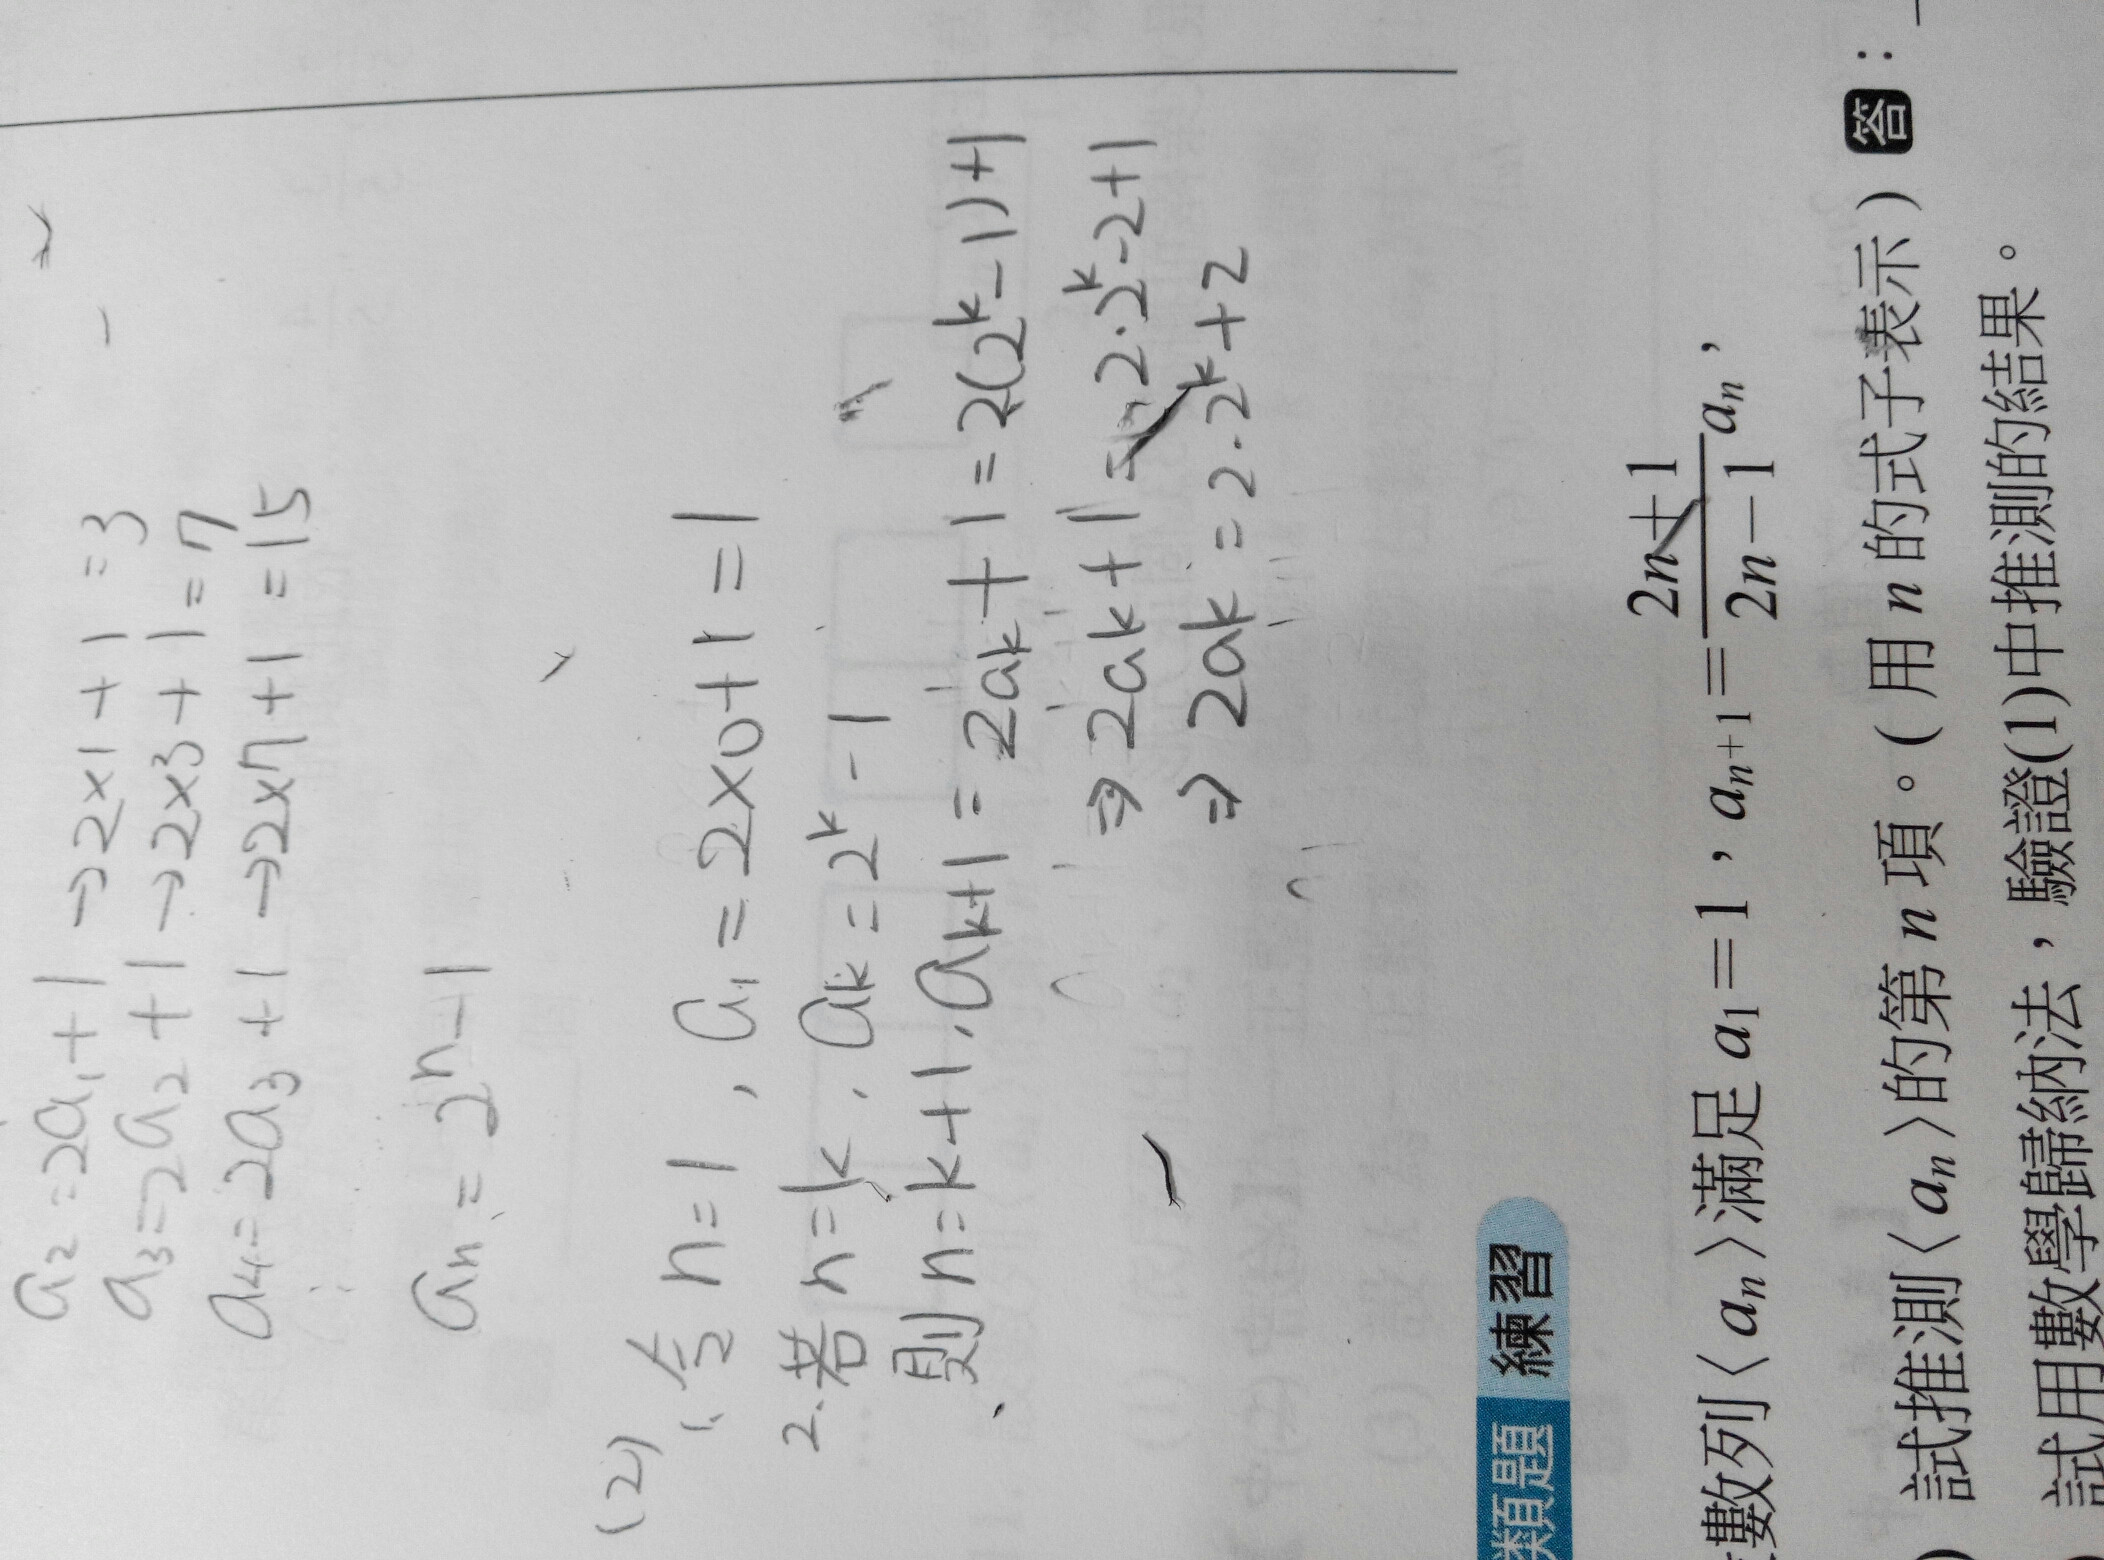 a₂=2a₁+1→2×1+1=3
a₃=2a₂+1→2×3+1=7
a₄=2a₃+1→2×7+1=15
aₙ=2ⁿ-1
(2)
1. 令n=1,a₁=2×0+1=1
2.若n=k,aₖ=2ᵏ-1
則n=k+1,aₖ₊₁=2aₖ+1=2(2ᵏ-1)+1
⇒2ak+1=2·2ᵏ-2+1
⇒2ak=2·2ᵏ+2
類題 練習
數列〈aₙ〉滿足a₁=1,aₙ₊₁=\frac{2n+1}{2n-1}aₙ,
試推測〈aₙ〉的第n項。(用n的式子表示)答:
試用數學歸納法,驗證(1)中推測的結果。